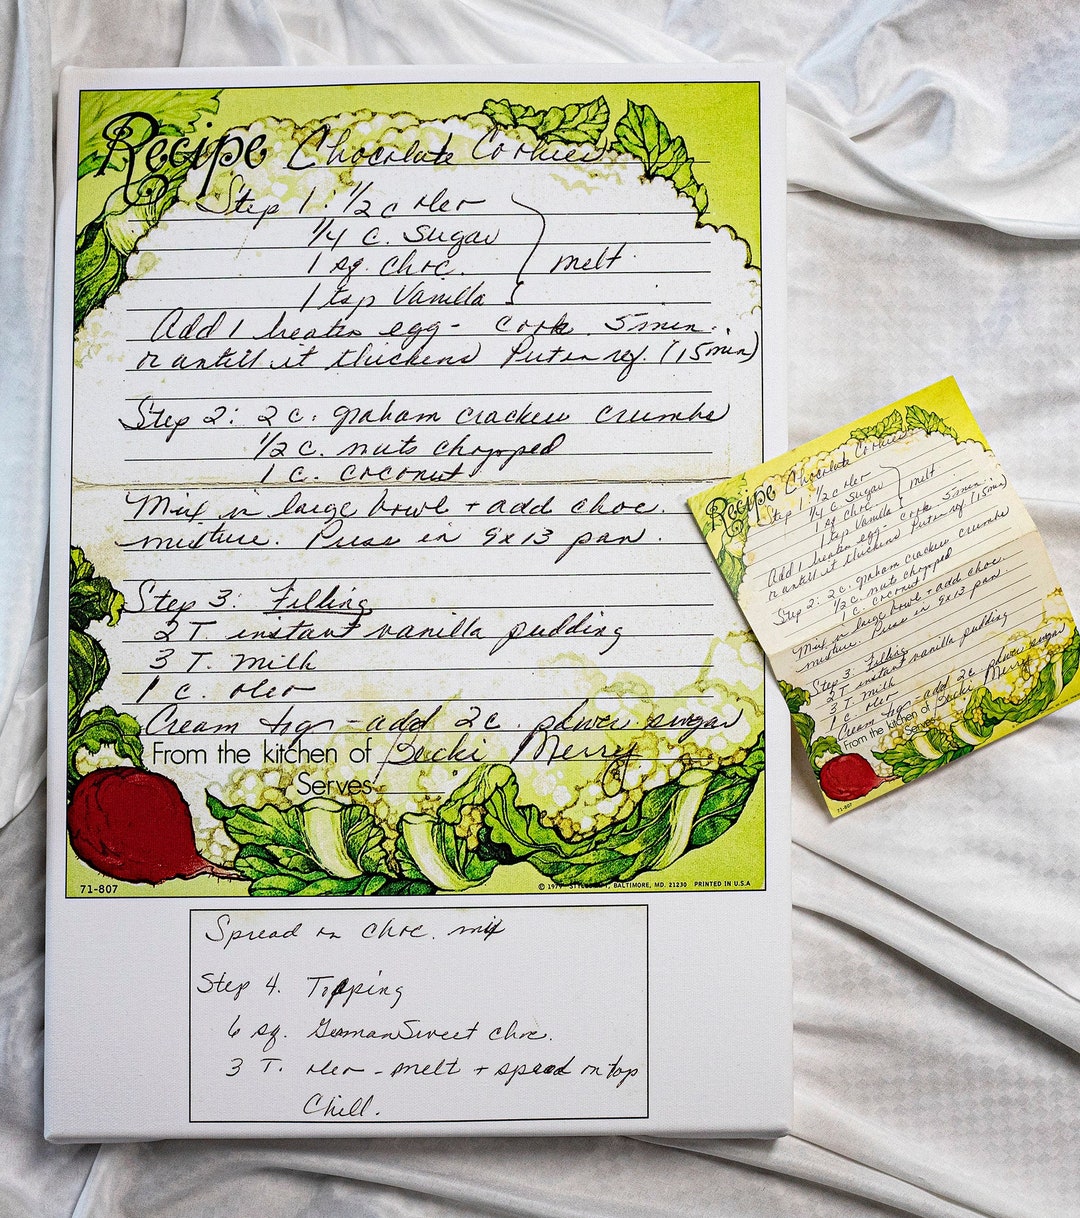 Recipe Chocolate Cookies
Step 1: 1/2 c oleo
1/4 c. Sugar
1 sq. choc. melt.
1 tsp Vanilla
Add 1 beaten egg - cook 5 min.
or until it thickens Put in ref. (15 min)
Step 2: 2 c. graham cracker crumbs
1/2 c. nuts chopped
1 c. coconut
Mix in large bowl + add choc.
mixture. Press in 9x13 pan.
Step 3: Filling
2 T. instant vanilla pudding
3 T. Milk
1 c. oleo
Cream togr - add 2 c. sugar
From the kitchen of Becki Merry
Serves
71-807
© BALTIMORE, MD. 21230 PRINTED IN U.S.A
Spread on choc. mix
Step 4. Topping
6 sq. German Sweet choc.
3 T. oleo - melt + spread on top
Chill.
Recipe Chocolate Cookies
Step 1: 1/2 c oleo
1/4 c. Sugar melt
1 sq. choc
1 tsp Vanilla
Add 1 beaten egg - cook 5 min.
or until it thickens Put in ref (15 min)
Step 2: 2 c. graham cracker crumbs
1/2 c. nuts chopped
1 c. coconut
Mix in large bowl + add choc.
mixture. Press in 9x13 pan.
Step 3: Filling
2 T. instant vanilla pudding
3 T. Milk
1 c. oleo
Cream togr - add 2 c. sugar
From the kitchen of Becki Merry
Serves
71-807